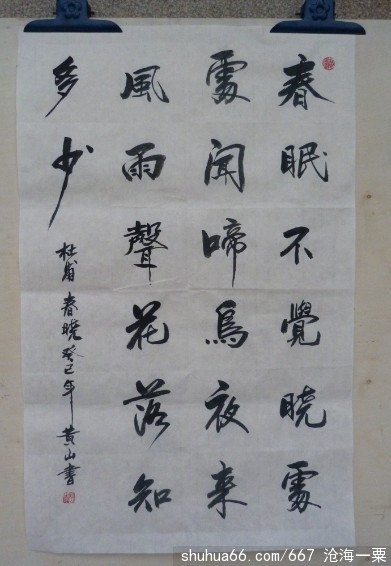 春眠不覺晓處
處聞啼鳥夜来
風雨聲花落知
多少
杜甫春晓癸巳年黄山書
shuhua66.com/667 沧海一粟